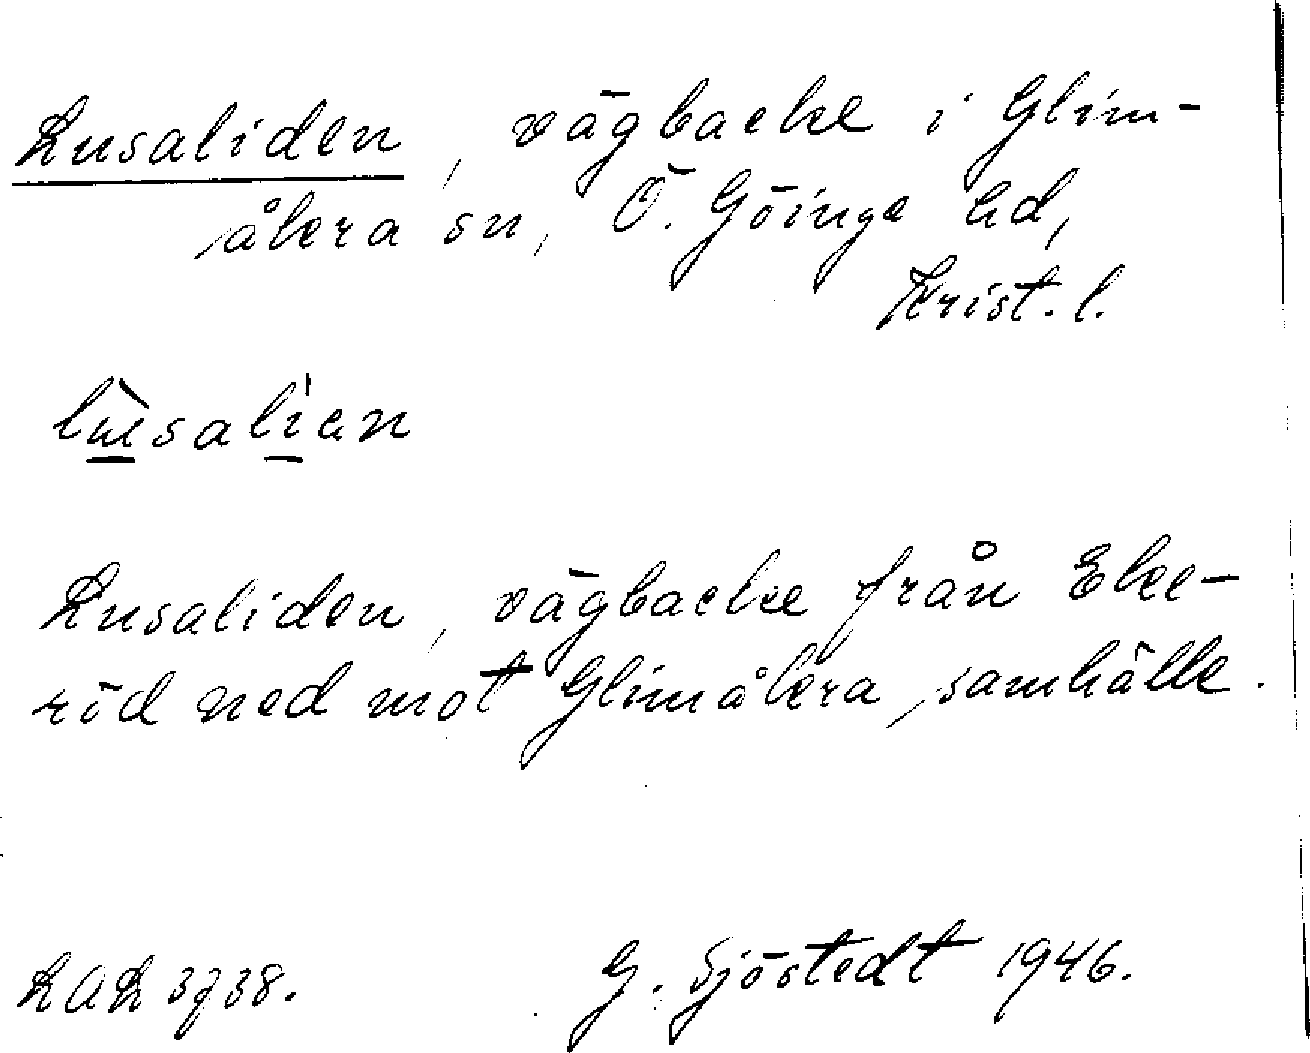 Lusaliden, vägbacke i Glim-
åkra sn, Ö. Göinge hd,
Krist. l.
lùsalien
Lusaliden, vägbacke från Eke-
röd ned mot Glimåkra, samhälle.
LAL 3738.
G. Sjöstedt 1946.